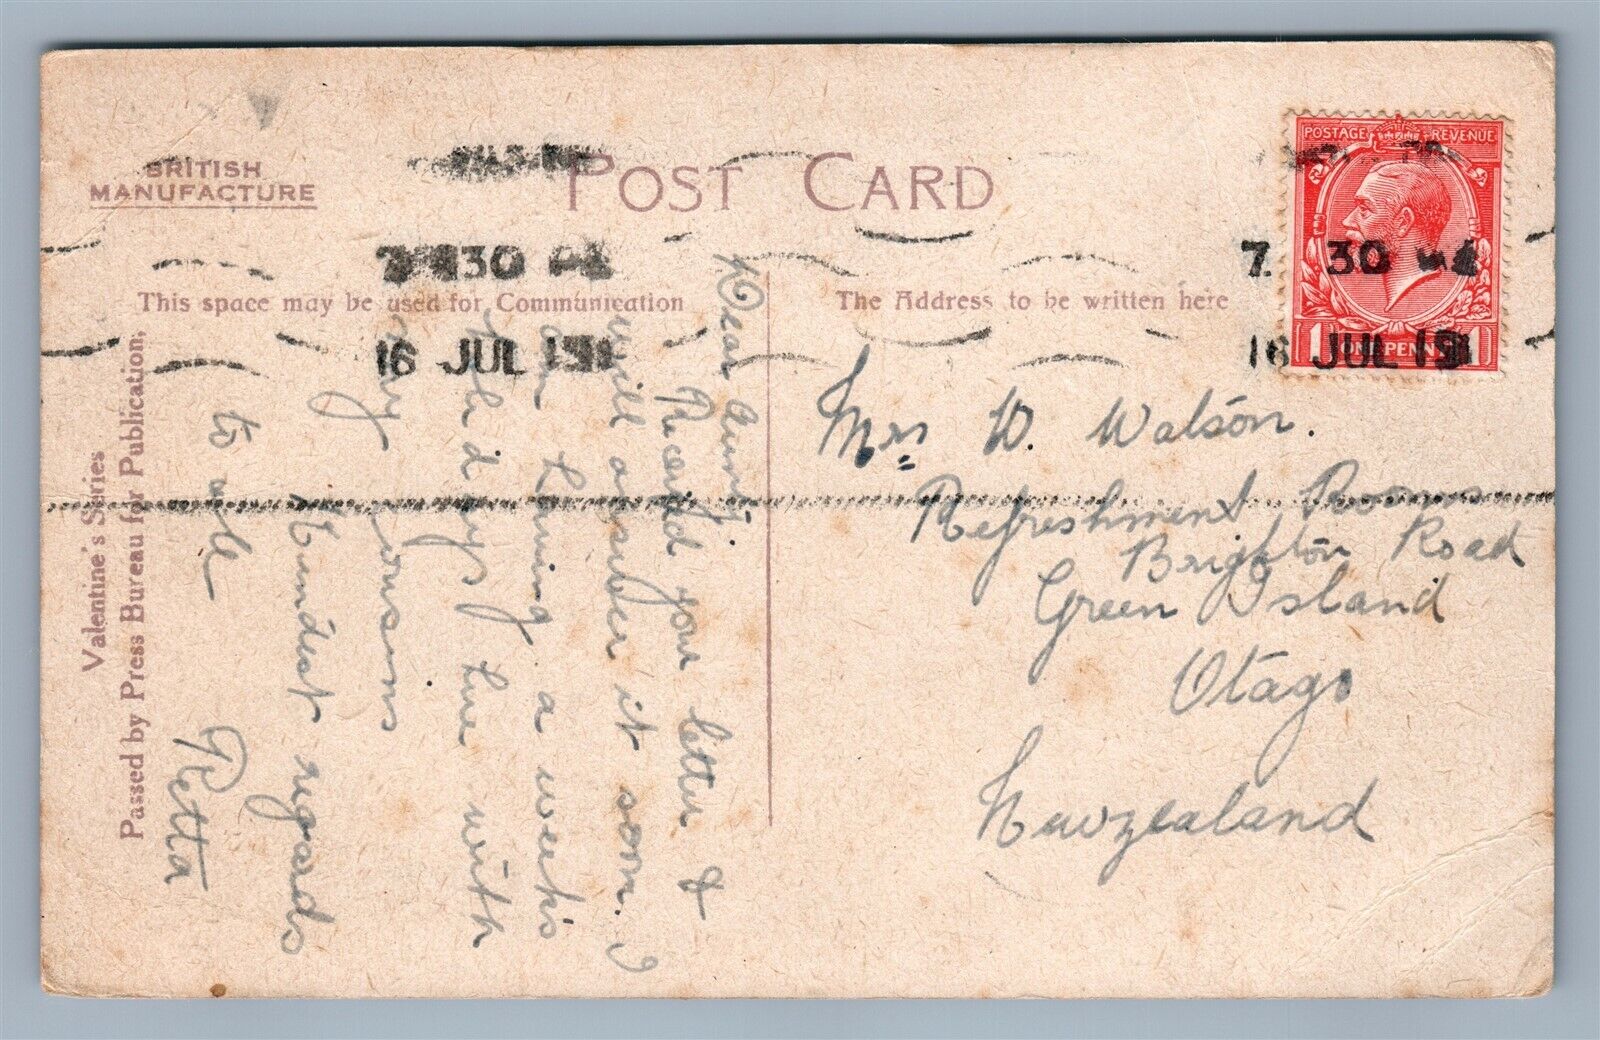 BRITISH
MANUFACTURE
POST CARD
POSTAGE REVENUE
7 30
16 JUL 19
7. 30
16 JUL 19
1 ONE PENNY 1
This space may be used for Communication
The Address to be written here
Valentine's Series
Passed by Press Bureau for Publication,
Dear Aunt,
Received your letter &
will answer it soon. I
am having a week's
holidays here with
my cousins
Kindest regards
to all
Retta
Mrs W. Watson.
Refreshment Rooms
Brighton Road
Green Island
Otago
Newzealand